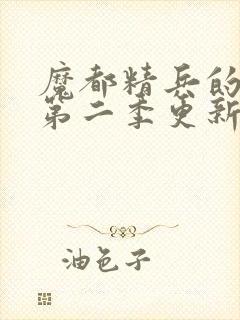 魔都精兵的
第二季更新
油色子